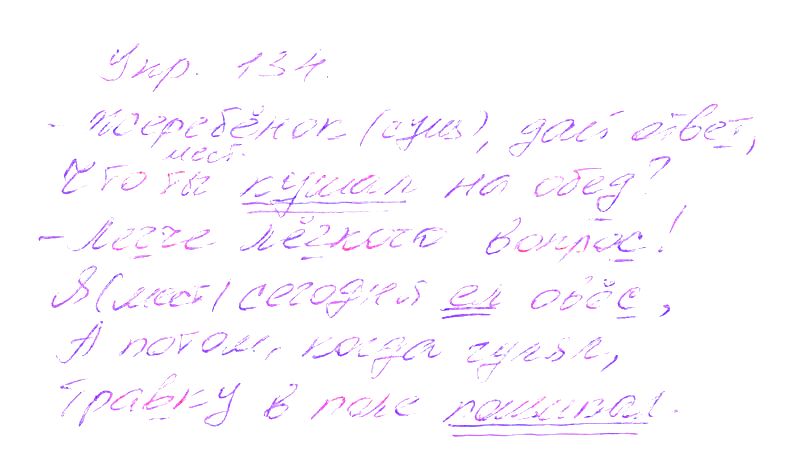 Упр. 134.
- Жеребёнок (сущ), дай ответ,
мест.
Что ты кушал на обед?
- Легче лёгкого вопрос!
Я (мест) сегодня ел овёс,
А потом, когда гулял,
Травку в поле пощипал.